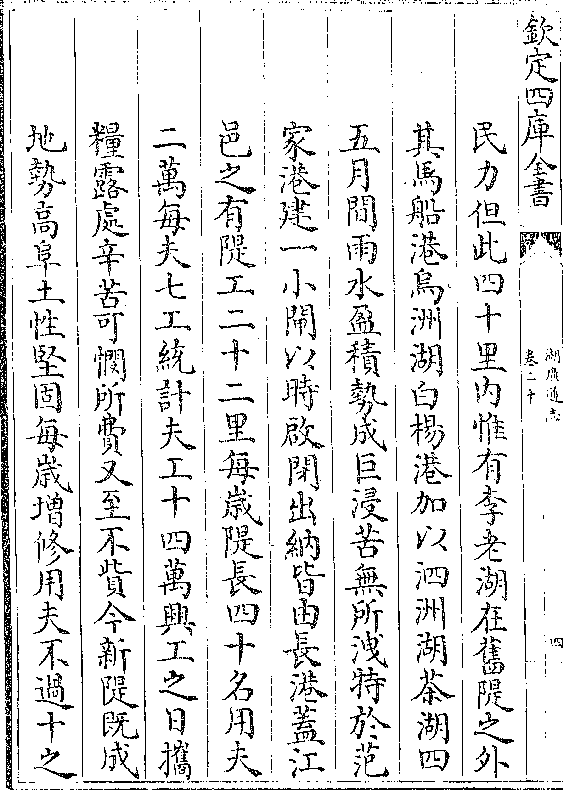 欽定四庫全書
湖廣通志
卷二十
四
民力但此四十里内惟有李老湖在舊隄之外
其馬船港烏洲湖白楊港加以泗洲湖茶湖四
五月間雨水盈積勢成巨浸苦無所洩特於范
家港建一小閘以時啟閉出納皆由長港蓋江
邑之有隄工二十二里每嵗隄長四十名用夫
二萬每夫七工統計夫工十四萬興工之日攜
糧露處辛苦可憫所費又至不貲今新隄既成
地勢高阜土性堅固每嵗増修用夫不過十之